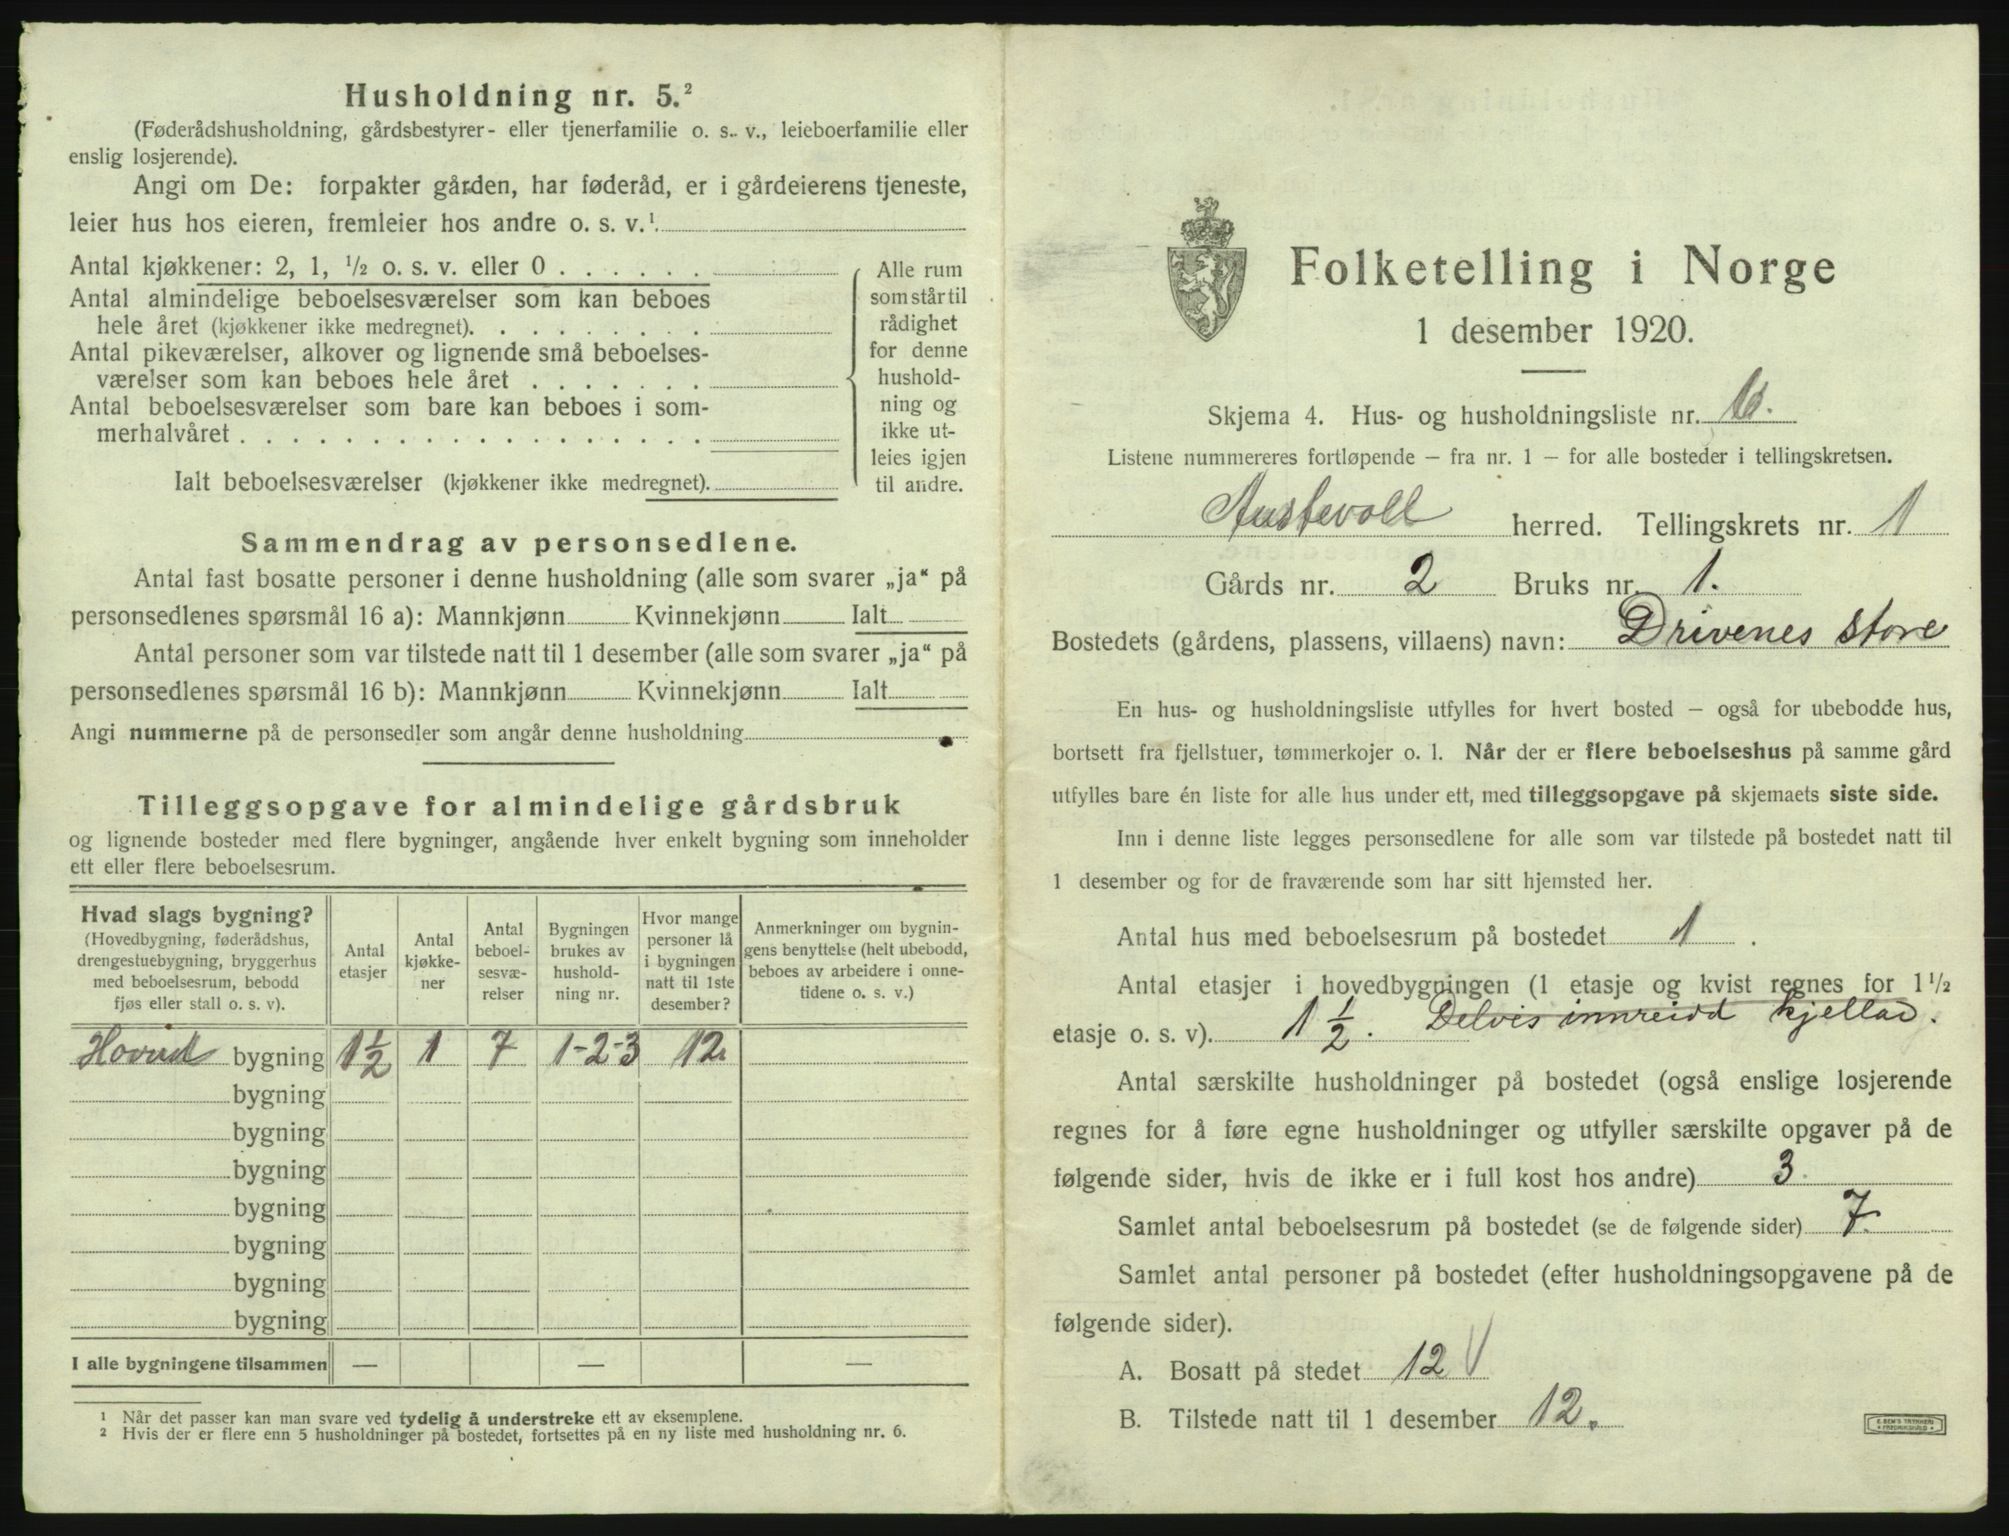 Husholdning nr. 5.²
(Føderådshusholdning, gårdsbestyrer- eller tjenerfamilie o. s. v., leieboerfamilie eller
enslig losjerende).
Angi om De: forpakter gården, har føderåd, er i gårdeierens tjeneste,
leier hus hos eieren, fremleier hos andre o. s. v.¹.
Antal kjøkkener: 2, 1, ½ o. s. v. eller 0 . . . . . .
Antal almindelige beboelsesværelser som kan beboes
hele året (kjøkkener ikke medregnet). . . . . . . . .
Antal pikeværelser, alkover og lignende små beboelses-
værelser som kan beboes hele året . . . . . . .
Antal beboelsesværelser som bare kan beboes i som-
merhalvåret . . . . . . . . . . . . . . . . . .
Ialt beboelsesværelser (kjøkkener ikke medregnet).
Alle rum
som står til
rådighet
for denne
hushold-
ning og
ikke ut-
leies igjen
til andre.
Sammendrag av personsedlene.
Antal fast bosatte personer i denne husholdning (alle som svarer „ja“ på
personsedlenes spørsmål 16 a): Mannkjønn Kvinnekjønn Ialt
Antal personer som var tilstede natt til 1 desember (alle som svarer „ja“ på
personsedlenes spørsmål 16 b): Mannkjønn Kvinnekjønn Ialt
Angi nummerne på de personsedler som angår denne husholdning
Tilleggsopgave for almindelige gårdsbruk
og lignende bosteder med flere bygninger, angående hver enkelt bygning som inneholder
ett eller flere beboelsesrum.
Hvad slags bygning?
(Hovedbygning, føderådshus,
drengestuebygning, bryggerhus
med beboelsesrum, bebodd
fjøs eller stall o. s. v).
Antal
etasjer
Antal
kjøkke-
ner
Antal
beboel-
sesvæ-
relser
Bygningen
brukes av
hushold-
ning nr.
Hvor mange
personer lå
i bygningen
natt til 1ste
desember?
Anmerkninger om bygnin-
gens benyttelse (helt ubebodd,
beboes av arbeidere i onne-
tidene o. s. v.)
Hovud bygning 1½ 1 7 1-2-3 12.
bygning
bygning
bygning
bygning
bygning
bygning
bygning
I alle bygningene tilsammen — — —
¹ Når det passer kan man svare ved tydelig å understreke ett av eksemplene.
² Hvis der er flere enn 5 husholdninger på bostedet, fortsettes på en ny liste med husholdning nr. 6.
Folketelling i Norge
1 desember 1920.
Skjema 4. Hus- og husholdningsliste nr.
Listene nummereres fortløpende – fra nr. 1 – for alle bosteder i tellingskretsen.
Austevoll herred. Tellingskrets nr. 1
Gårds nr. 2 Bruks nr. 1.
Bostedets (gårdens, plassens, villaens) navn: Drivenes store
En hus- og husholdningsliste utfylles for hvert bosted – også for ubebodde hus,
bortsett fra fjellstuer, tømmerkojer o. l. Når der er flere beboelseshus på samme gård
utfylles bare én liste for alle hus under ett, med tilleggsopgave på skjemaets siste side.
Inn i denne liste legges personsedlene for alle som var tilstede på bostedet natt til
1 desember og for de fraværende som har sitt hjemsted her.
Antal hus med beboelsesrum på bostedet 1 .
Antal etasjer i hovedbygningen (1 etasje og kvist regnes for 1½
etasje o. s. v). 1½. Delvis innreidd kjellar.
Antal særskilte husholdninger på bostedet (også enslige losjerende
regnes for å føre egne husholdninger og utfyller særskilte opgaver på de
følgende sider, hvis de ikke er i full kost hos andre) 3.
Samlet antal beboelsesrum på bostedet (se de følgende sider) 7.
Samlet antal personer på bostedet (efter husholdningsopgavene på de
følgende sider).
A. Bosatt på stedet 12
B. Tilstede natt til 1 desember 12.
E. SEM'S TRYKKERI
FREDRIKSHALD